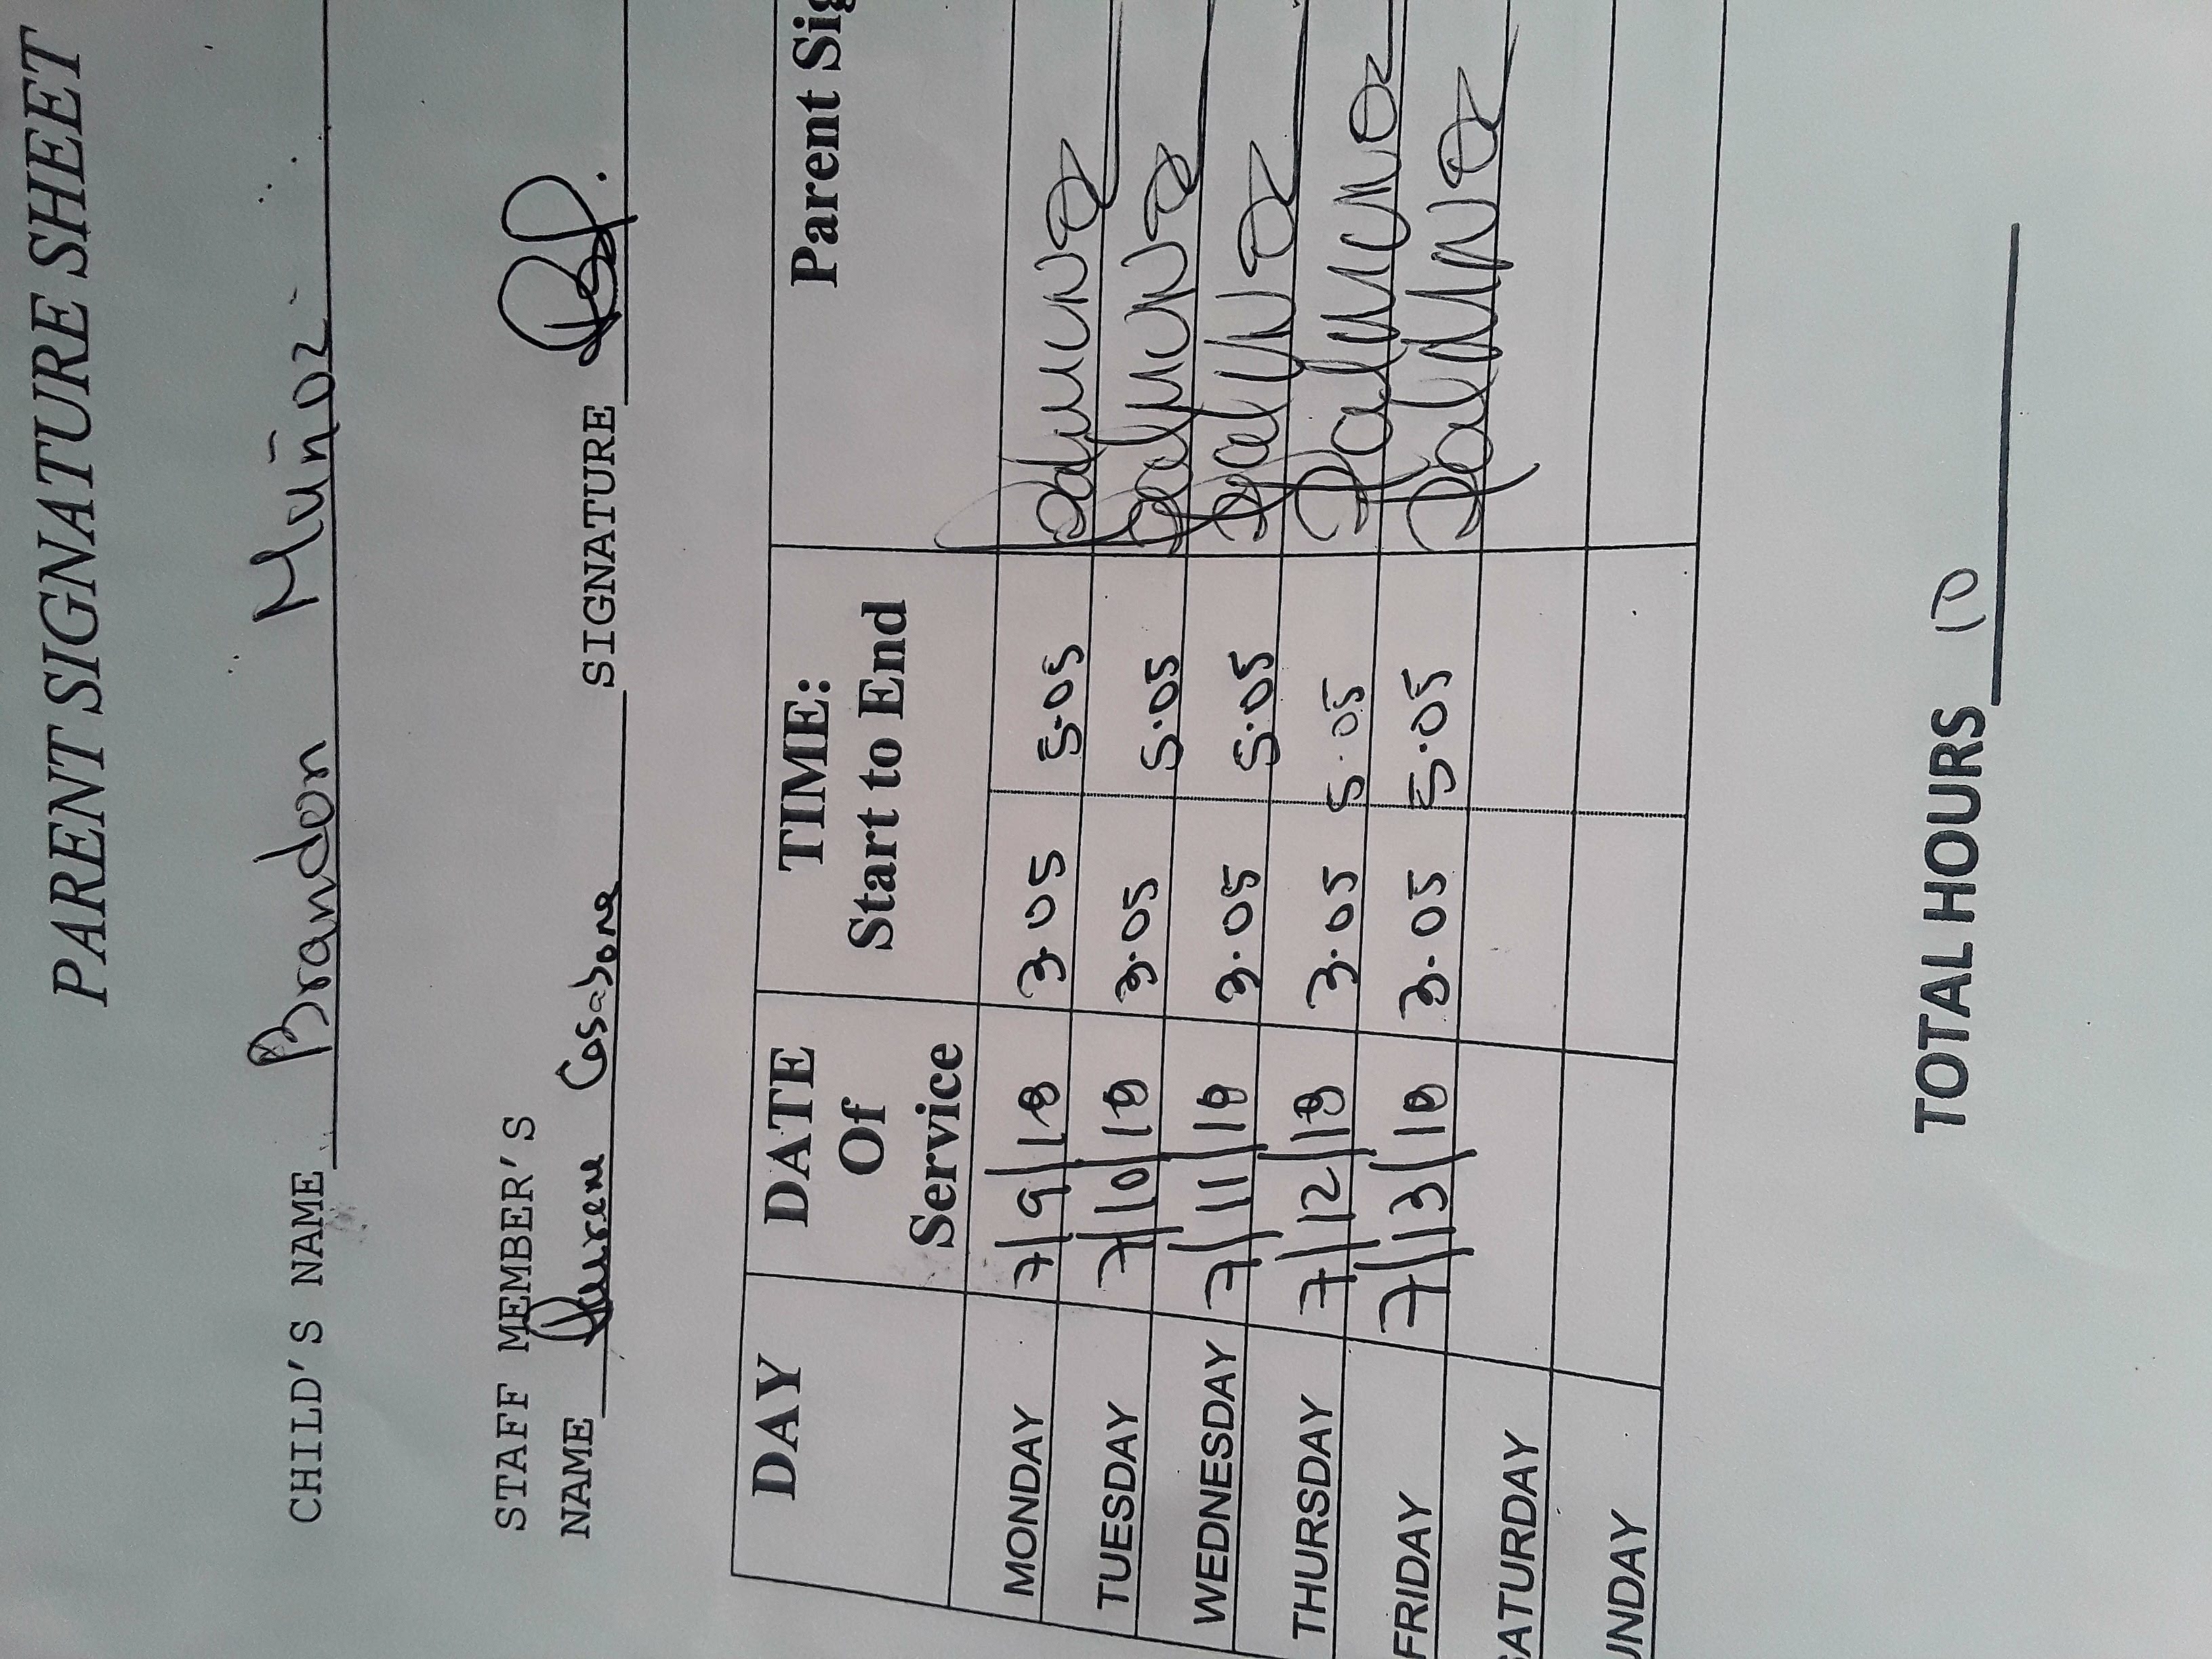 PARENT SIGNATURE SHEET
CHILD'S NAME Brandon Muñoz
STAFF MEMBER'S
NAME Casabona SIGNATURE
DAY DATE Of Service TIME: Start to End Parent Sig
MONDAY 7/9/18 3.05 5.05
TUESDAY 7/10/18 3.05 5.05
WEDNESDAY 7/11/18 3.05 5.05
THURSDAY 7/12/18 3.05 5.05
FRIDAY 7/13/18 3.05 5.05
SATURDAY
UNDAY
TOTAL HOURS 10